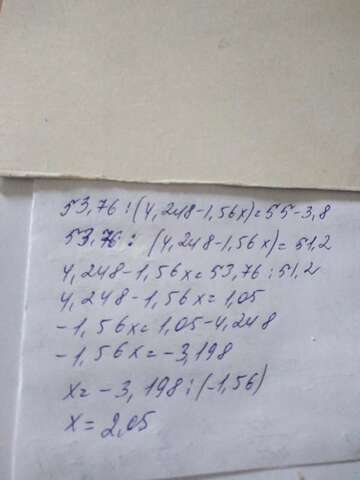 53,76:(4,248-1,56x)=55-3,8
53,76: (4,248-1,56x)=51,2
4,248-1,56x=53,76:51,2
4,248-1,56x=1,05
-1,56x=1,05-4,248
-1,56x=-3,198
x=-3,198:(-1,56)
x=2,05